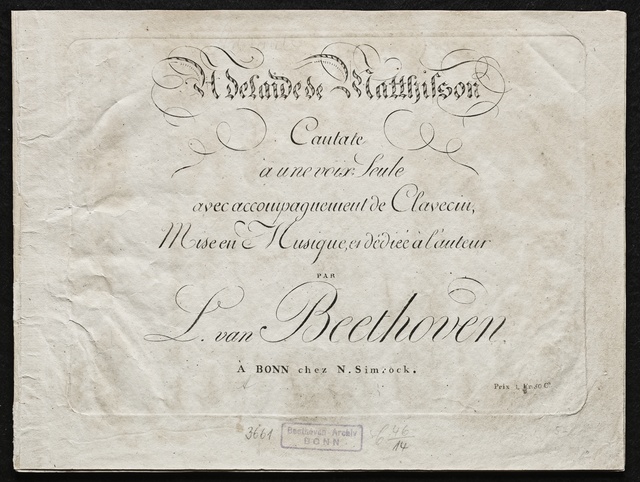 Adelaïde de Matthisson
Cantate
à une voix Seule
avec accompagnement de Clavecin,
Mise en Musique, et dédiée à l'auteur
PAR
L. van Beethoven.
À BONN chez N. Simrock.
Prix 1 Fr. 50 Cs
3661
Beethoven-Archiv
BONN
46
14